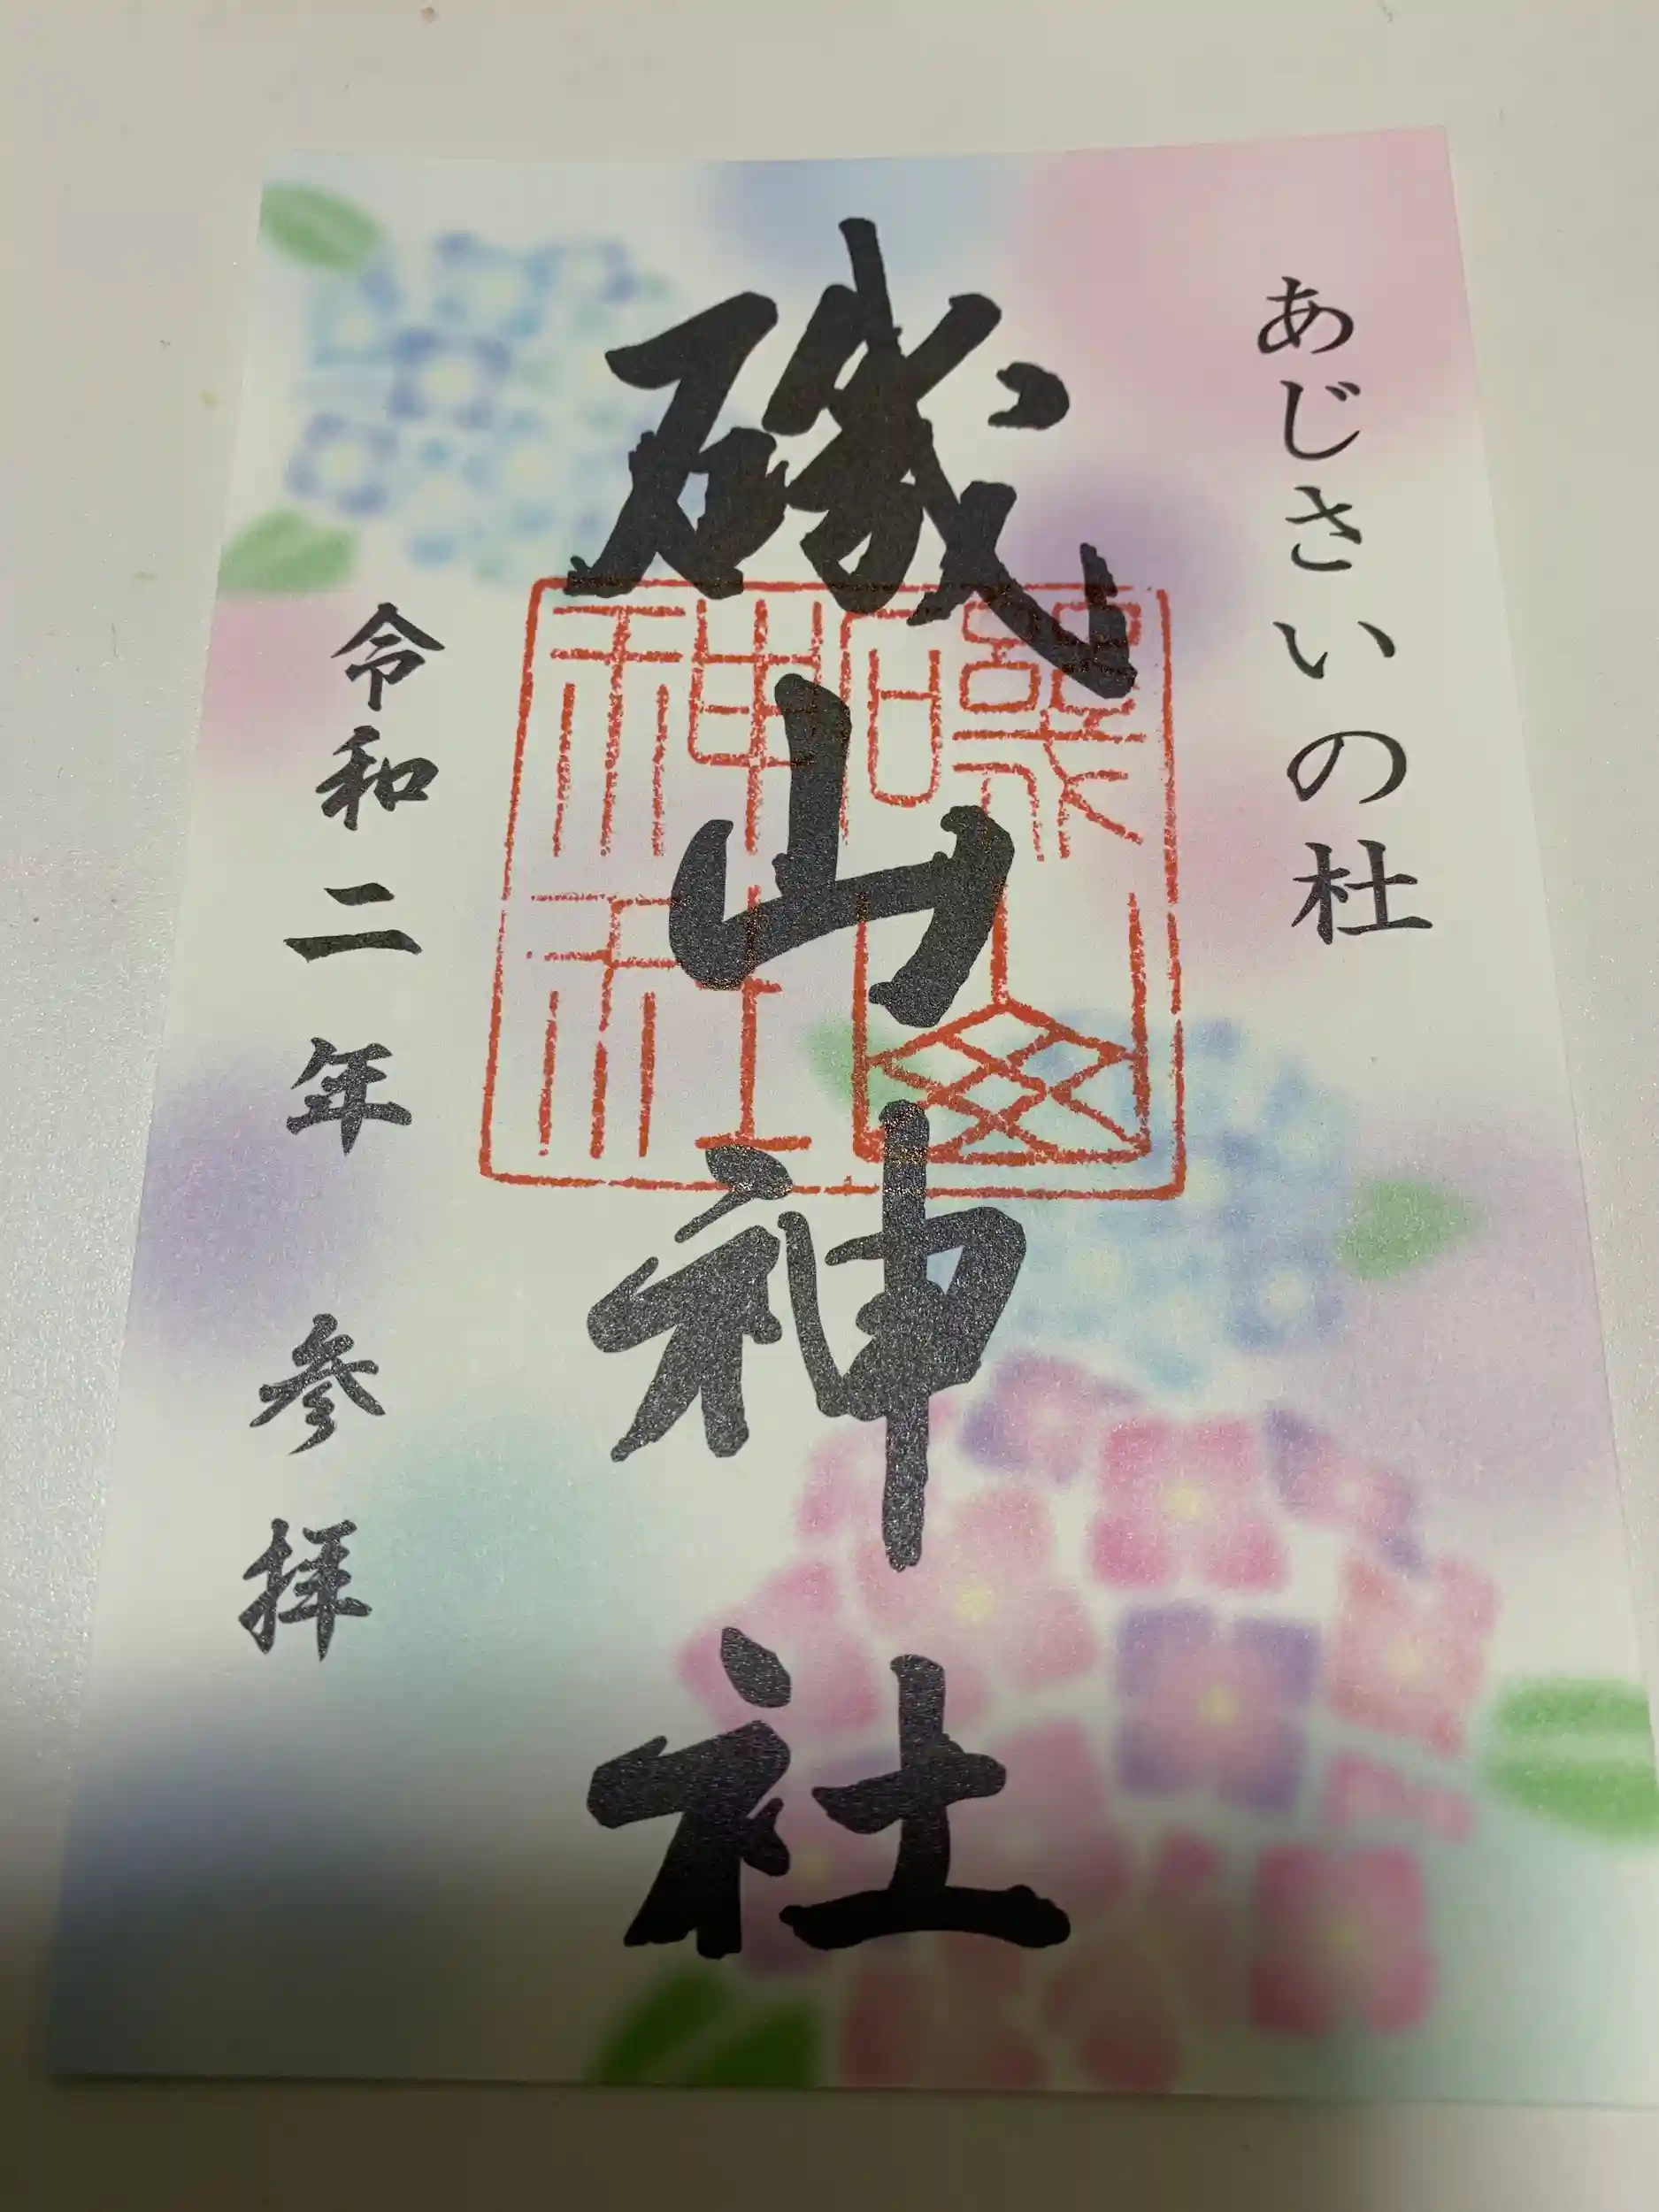 あじさいの杜
磯山神社
令和二年 参拝